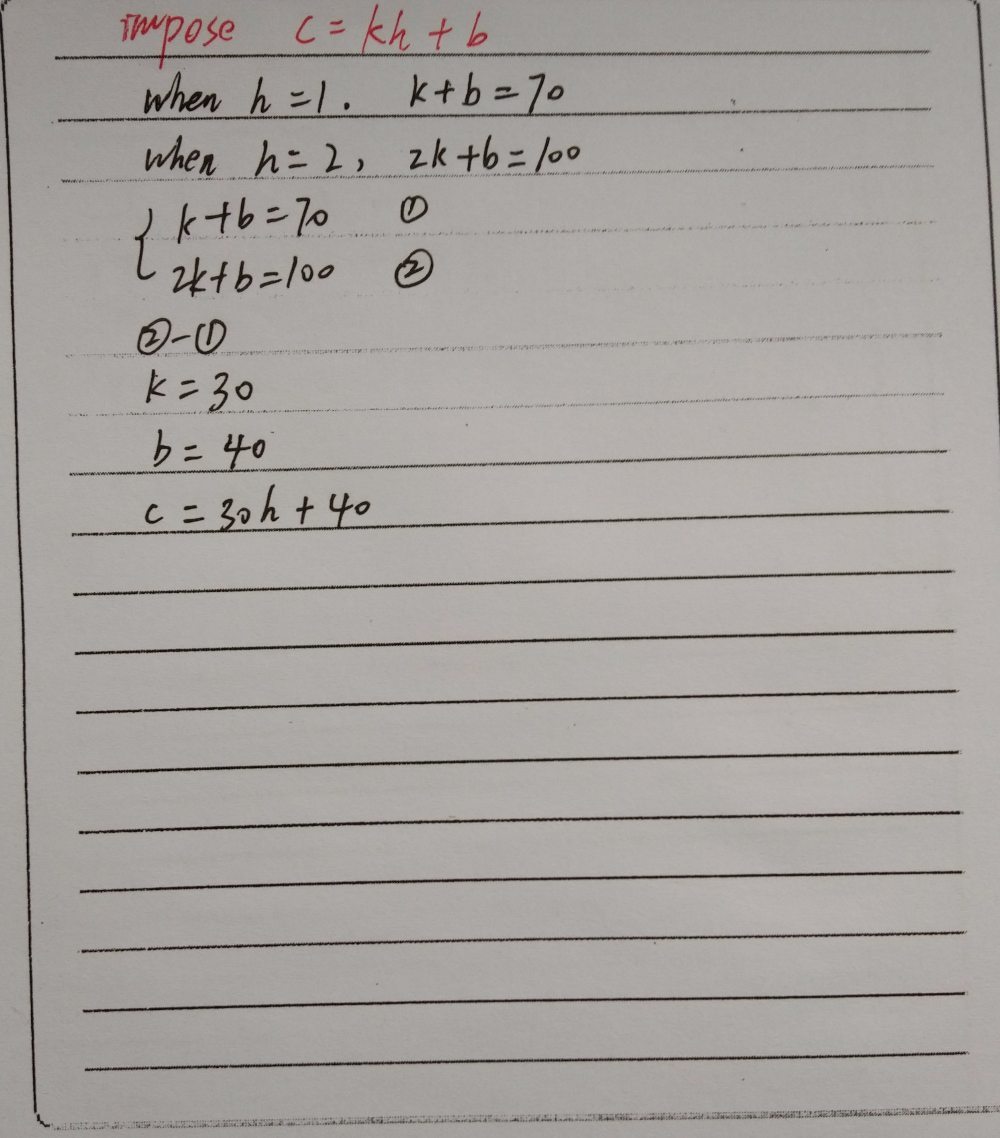 Impose c = kh + b
when h = 1. k + b = 70
when h = 2, 2k + b = 100
{ k + b = 70 ①
2k + b = 100 ②
② - ①
k = 30
b = 40
c = 30h + 40